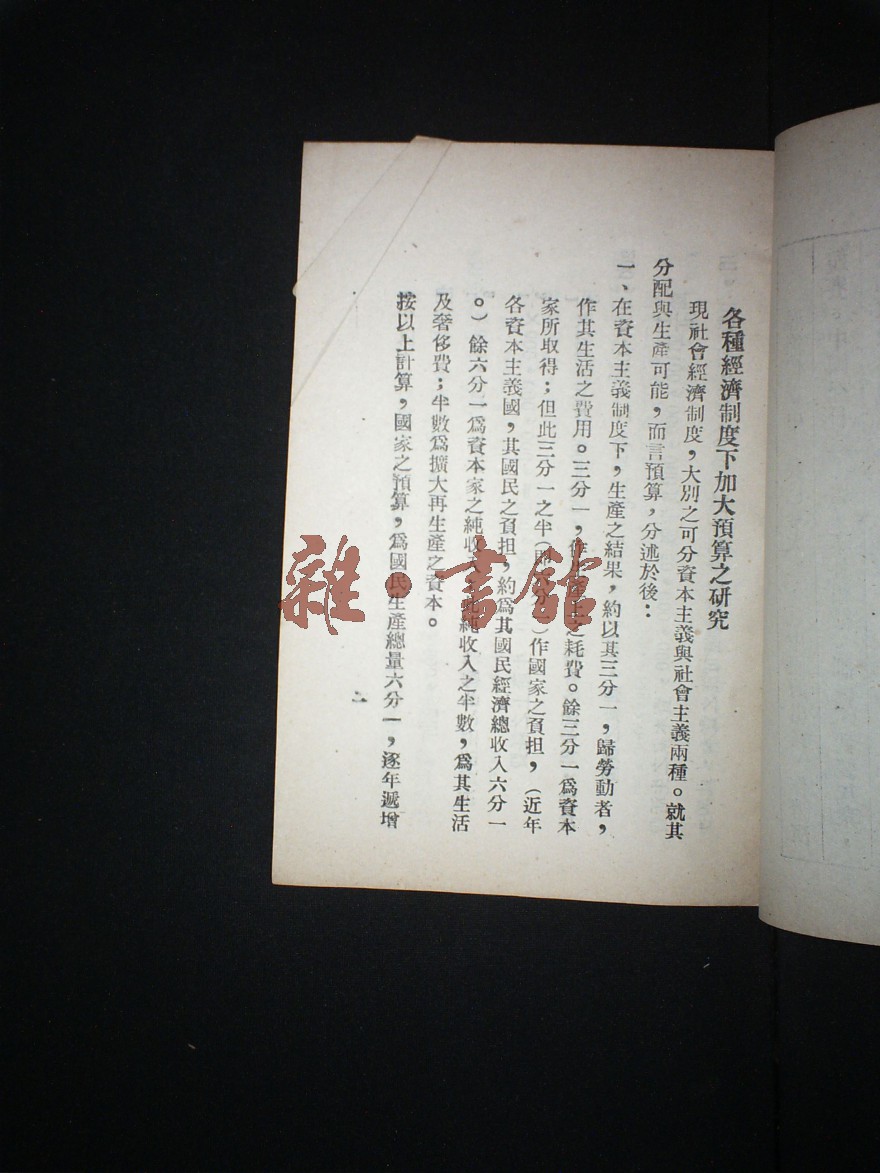 各種經濟制度下加大預算之研究
現社會經濟制度，大別之可分資本主義與社會主義兩種。就其
分配與生產可能，而言預算，分述於後：
一、在資本主義制度下，生產之結果，約以其三分一，歸勞動者，
作其生活之費用。三分一，之耗費。餘三分一爲資本
家所取得；但此三分一之半（即六分一）作國家之負担，（近年
各資本主義國，其國民之負担，約爲其國民經濟總收入六分一
。）餘六分一爲資本家之純收入，純收入之半數，爲其生活
及奢侈費；半數爲擴大再生產之資本。
按以上計算，國家之預算，爲國民生產總量六分一，逐年遞增
二
雜·書館